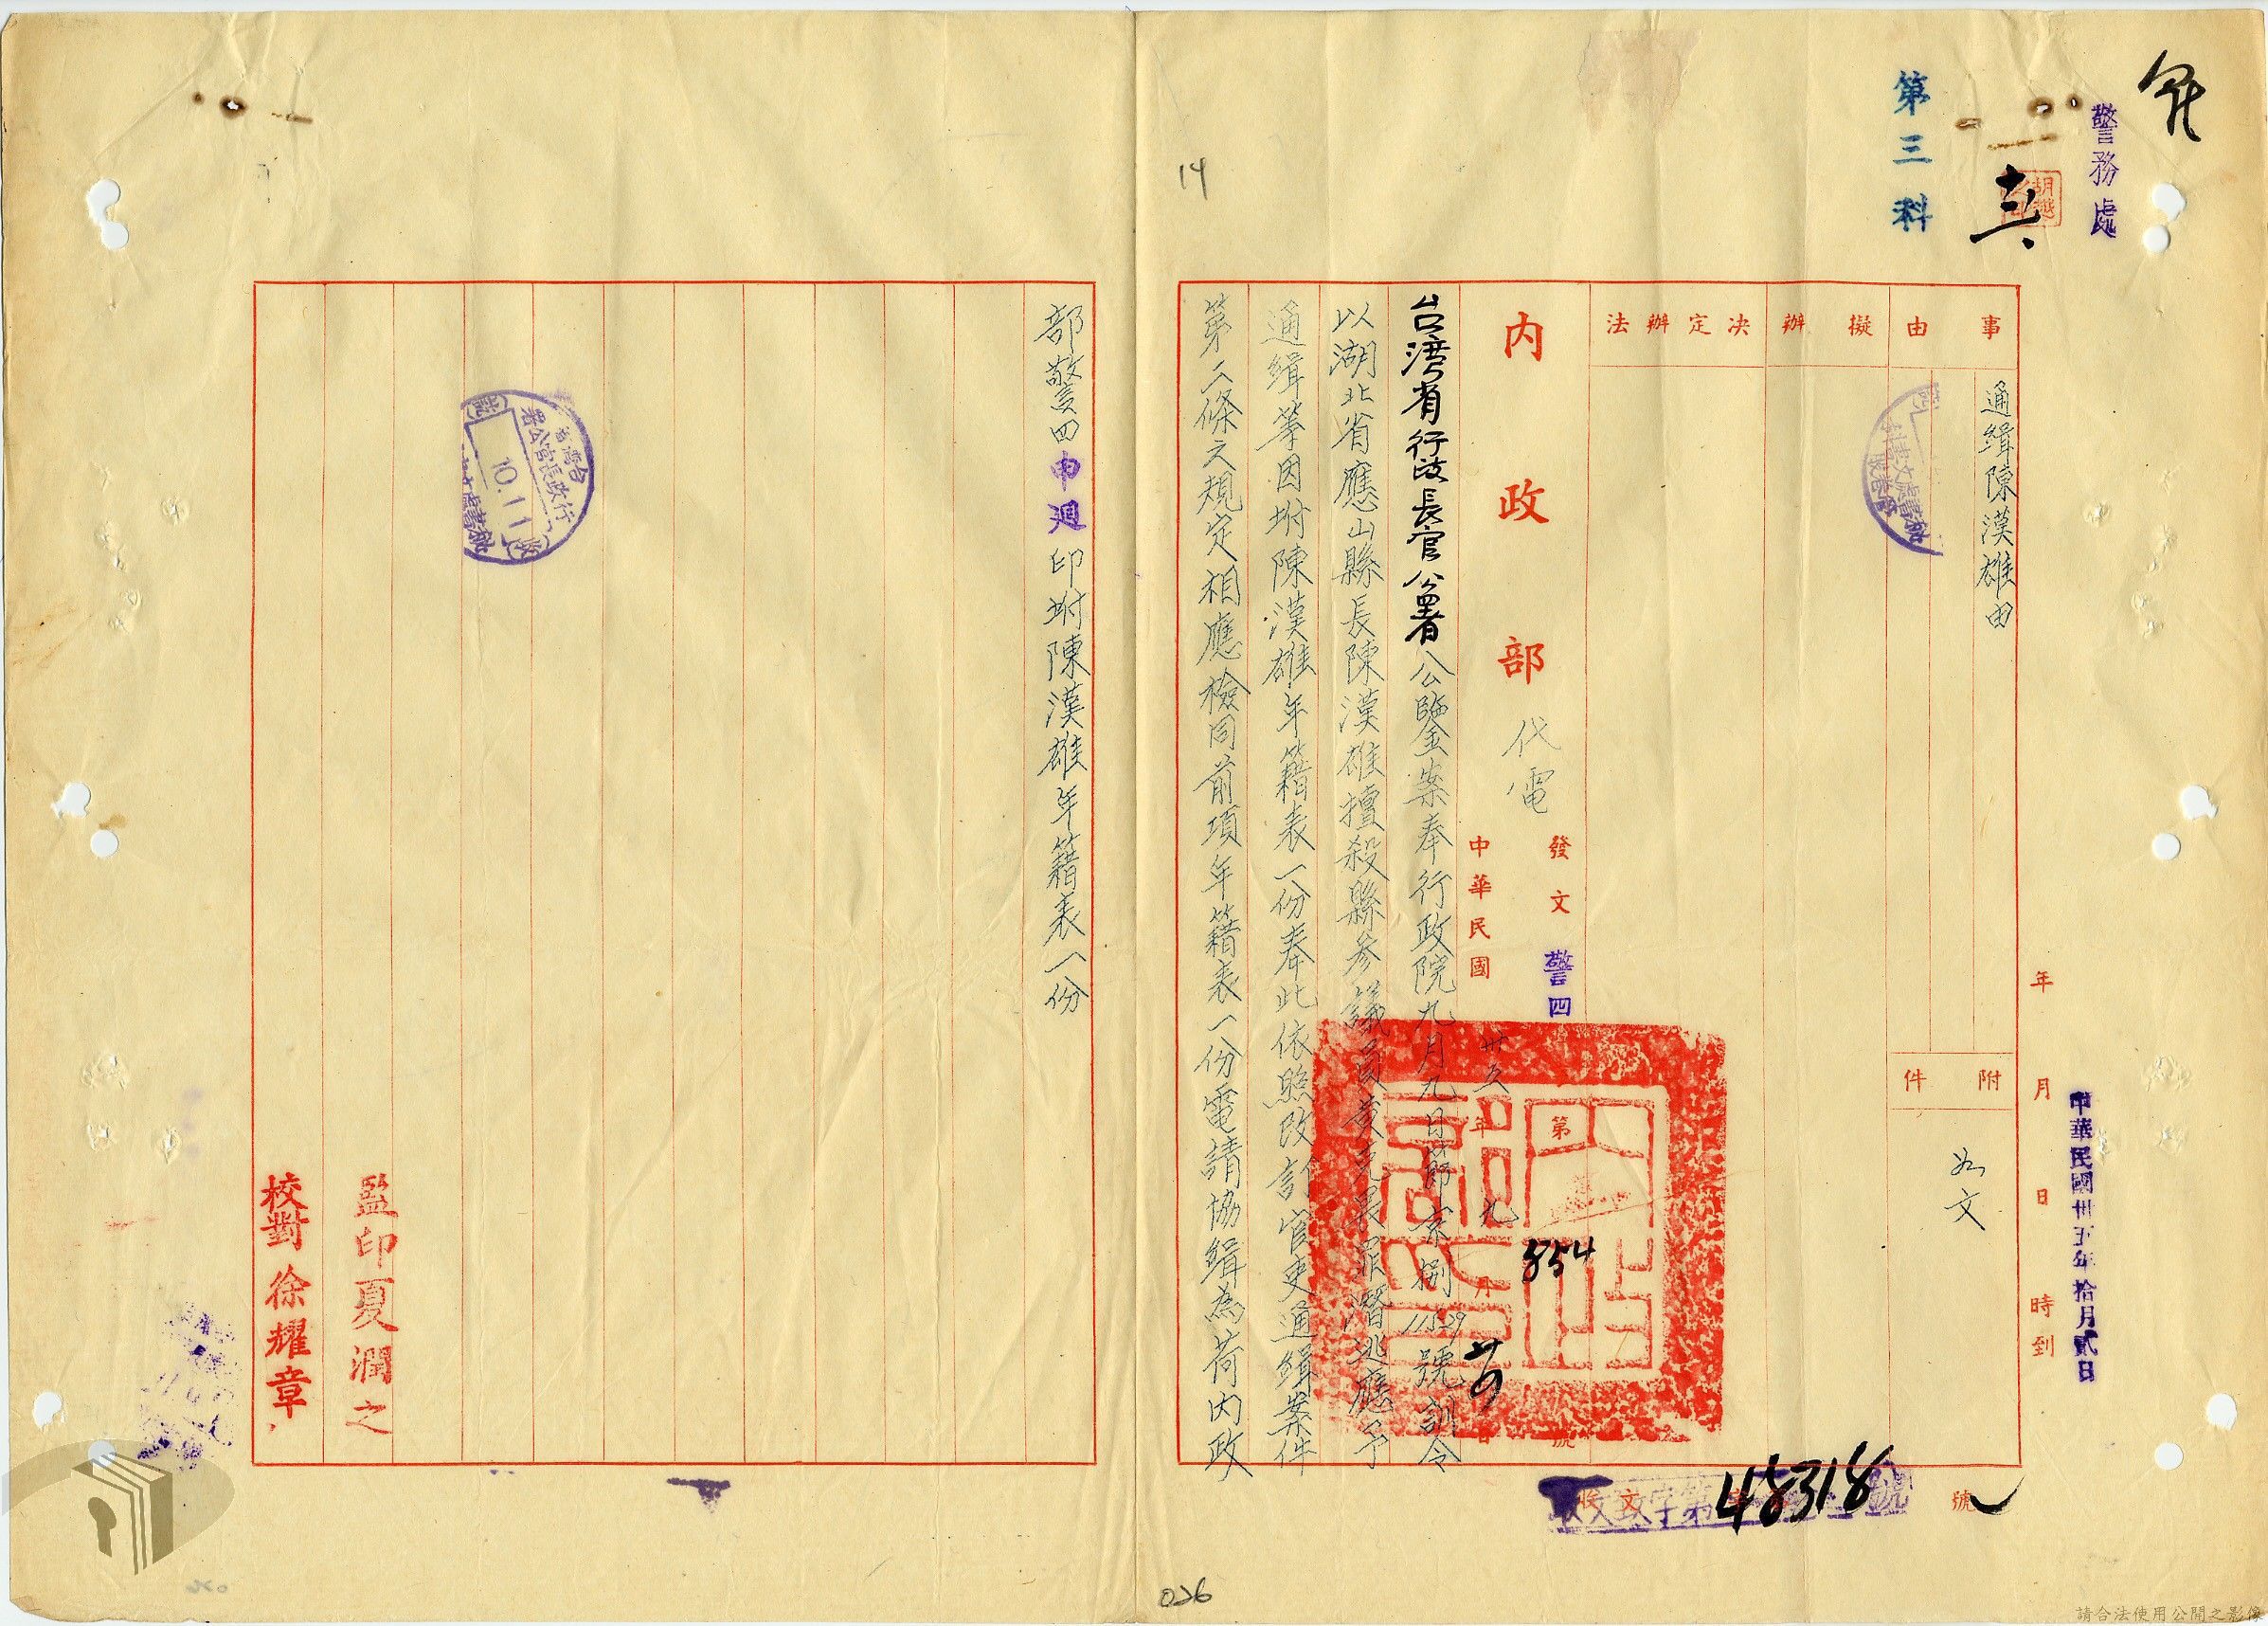 警務處
第三科
事由
通緝陳漢雄由
附件
如文
擬辦
決定辦法
年 月 日 時到
中華民國卅五年拾月貳日
收文 字第 48318 號
內政部 代電
發文 警四 第 854 號
中華民國 卅五 年 九 月 日
台灣省行政長官公署公鑒案奉行政院九月九日節京捌11529號訓令
以湖北省應山縣長陳漢雄擅殺縣參議員黃克畏罪潛逃應予
通緝等因坿陳漢雄年籍表一份奉此依照改訂官吏通緝案件
第二條之規定相應檢同前項年籍表一份電請協緝為荷內政
部警四申迴印坿陳漢雄年籍表一份
台灣省行政長官公署
10.11
監印夏潤之
校對徐耀章
14
026
請合法使用公開之影像